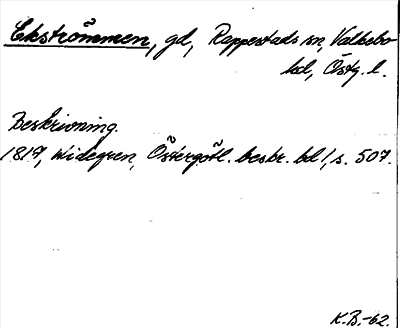 Ekströmmen, gd, Rappestads sn, Valkebo
hd, Östg. l.
Beskrivning.
1817, Widegren, Östergötl. beskr. bd 1, s. 507.
K.B.-62.